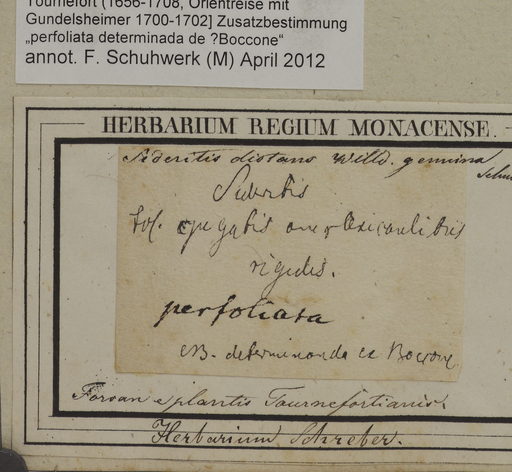 Tournefort (1656-1708, Orientreise mit
Gundelsheimer 1700-1702] Zusatzbestimmung
„perfoliata determinada de ?Boccone“
annot. F. Schuhwerk (M) April 2012
HERBARIUM REGIUM MONACENSE.
Sideritis distans Willd. genuina
fol.
rigidis.
perfoliata
NB. determinanda ex Boccone
Forsan e plantis Tournefortianis.
Herbarium Schreber.